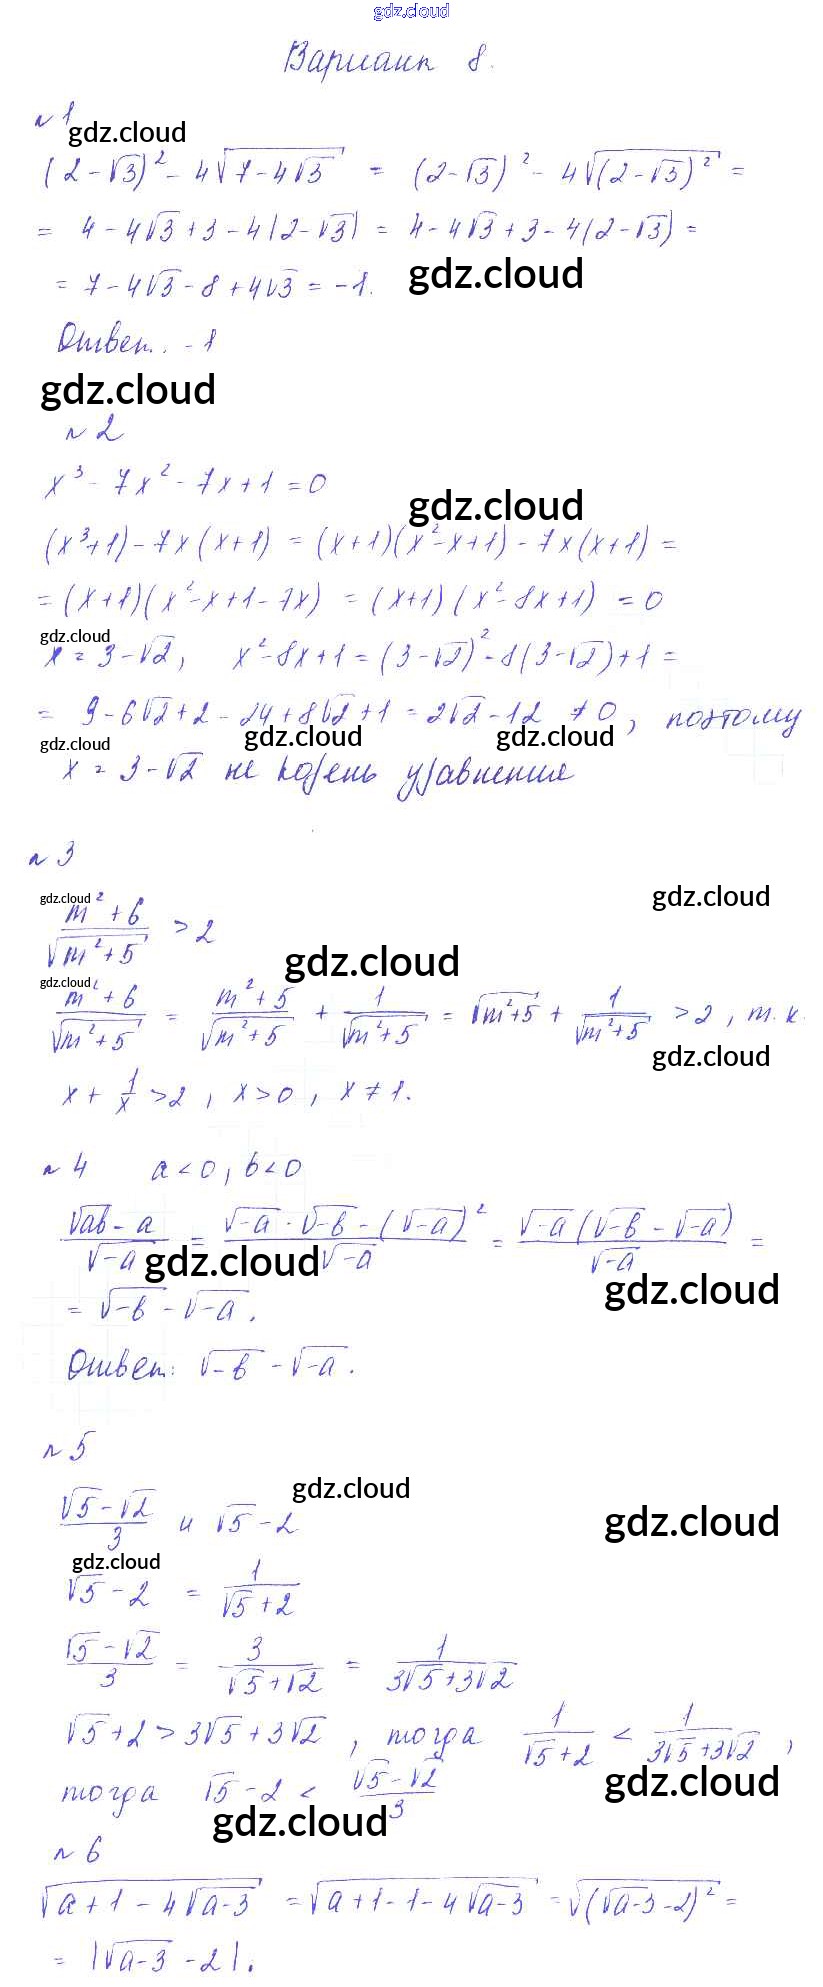 gdz.cloud
Вариант 8.
№1
gdz.cloud
(2-√3)² - 4√(7-4√3) = (2-√3)² - 4√((2-√3)²) =
= 4-4√3+3-4|2-√3| = 4-4√3+3-4(2-√3) =
= 7-4√3-8+4√3 = -1.
gdz.cloud
Ответ: -1
gdz.cloud
№2
x³-7x²-7x+1=0
gdz.cloud
(x³+1)-7x(x+1) = (x+1)(x²-x+1)-7x(x+1) =
= (x+1)(x²-x+1-7x) = (x+1)(x²-8x+1) = 0
gdz.cloud
x = 3-√2, x²-8x+1 = (3-√2)²-8(3-√2)+1 =
= 9-6√2+2-24+8√2+1 = 2√2-12 ≠ 0, поэтому
gdz.cloud gdz.cloud gdz.cloud
x = 3-√2 не корень уравнения
№3
gdz.cloud gdz.cloud
(m²+6)/√(m²+5) > 2
gdz.cloud
gdz.cloud
(m²+6)/√(m²+5) = (m²+5)/√(m²+5) + 1/√(m²+5) = √(m²+5) + 1/√(m²+5) > 2, т.к.
gdz.cloud
x + 1/x > 2, x>0, x≠1.
№4 a<0, b<0
(√ab - a)/√-a = (√-a · √-b - (√-a)²)/√-a = √-a(√-b - √-a)/√-a =
gdz.cloud gdz.cloud
= √-b - √-a.
Ответ: √-b - √-a.
№5
gdz.cloud
(√5-√2)/3 и √5-2
gdz.cloud
gdz.cloud
√5-2 = 1/(√5+2)
(√5-√2)/3 = 3/(√5+√2) = 1/(3√5+3√2)
√5+2 > 3√5+3√2, тогда 1/(√5+2) < 1/(3√5+3√2),
gdz.cloud
тогда √5-2 < (√5-√2)/3
gdz.cloud
№6
√(a+1-4√(a-3)) = √(a+1-1-4√(a-3)) = √((√(a-3)-2)²) =
= |√(a-3)-2|.